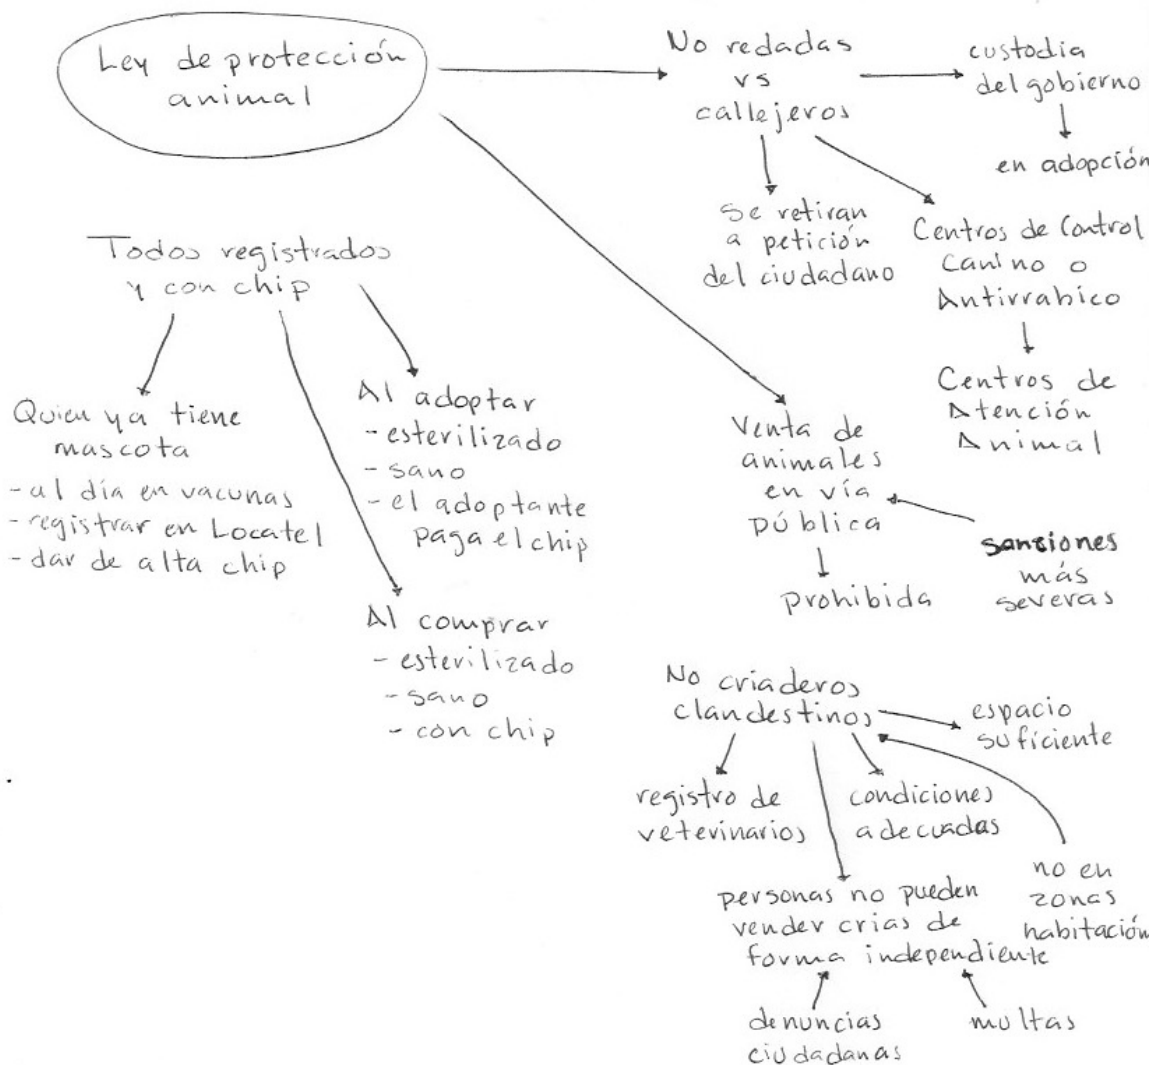 Ley de protección
animal
No redadas
vs
callejeros
custodia
del gobierno
en adopción
Se retiran
a petición
del ciudadano
Centros de Control
Canino o
Antirrabico
Centros de
Atención
Animal
Todos registrados
y con chip
Quien ya tiene
mascota
- al día en vacunas
- registrar en Locatel
- dar de alta chip
Al adoptar
- esterilizado
- sano
- el adoptante
paga el chip
Al comprar
- esterilizado
- sano
- con chip
Venta de
animales
en vía
pública
prohibida
sanciones
más
severas
No criaderos
clandestinos
espacio
suficiente
registro de
veterinarios
condiciones
adecuadas
no en
zonas
habitación
personas no pueden
vender crias de
forma independiente
denuncias
ciudadanas
multas